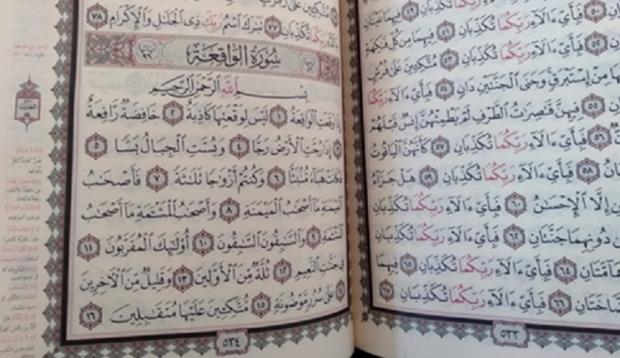 فَبِأَيِّ ءَالَآءِ رَبِّكُمَا تُكَذِّبَانِ
تُكَذِّبَانِ ٥١ فِيهِمَا مِن كُلِّ فَٰكِهَةٍ
فَبِأَيِّ ءَالَآءِ رَبِّكُمَا تُكَذِّبَانِ ٥٣ مُتَّكِـِٔينَ عَلَىٰ فُرُشٍ
مِنْ إِسْتَبْرَقٍ وَجَنَى ٱلْجَنَّتَيْنِ دَانٍ ٥٤ فَبِأَيِّ ءَالَآءِ رَبِّكُمَا
٥٥ فِيهِنَّ قَٰصِرَٰتُ ٱلطَّرْفِ لَمْ يَطْمِثْهُنَّ إِنسٌ قَبْلَهُمْ
٥٦ فَبِأَيِّ ءَالَآءِ رَبِّكُمَا تُكَذِّبَانِ ٥٧ كَأَنَّهُنَّ ٱلْيَاقُوتُ
٥٨ فَبِأَيِّ ءَالَآءِ رَبِّكُمَا تُكَذِّبَانِ ٥٩ هَلْ جَزَآءُ
إِلَّا ٱلْإِحْسَٰنُ ٦٠ فَبِأَيِّ ءَالَآءِ رَبِّكُمَا تُكَذِّبَانِ
دُونِهِمَا جَنَّتَانِ ٦٢ فَبِأَيِّ ءَالَآءِ رَبِّكُمَا تُكَذِّبَانِ
مُدْهَآمَّتَانِ ٦٤ فَبِأَيِّ ءَالَآءِ رَبِّكُمَا تُكَذِّبَانِ ٦٥ فِيهِمَا
نَضَّاخَتَانِ ٦٦ فَبِأَيِّ ءَالَآءِ رَبِّكُمَا تُكَذِّبَانِ ٦٧
٥٣٣
رَبِّكُمَا تُكَذِّبَانِ ٧٧ تَبَٰرَكَ ٱسْمُ رَبِّكَ ذِى ٱلْجَلَٰلِ وَٱلْإِكْرَامِ ٧٨
سُورَةُ الوَاقِعَةِ
بِسْمِ ٱللَّهِ ٱلرَّحْمَٰنِ ٱلرَّحِيمِ
إِذَا وَقَعَتِ ٱلْوَاقِعَةُ ١ لَيْسَ لِوَقْعَتِهَا كَاذِبَةٌ ٢ خَافِضَةٌ رَّافِعَةٌ
٣ إِذَا رُجَّتِ ٱلْأَرْضُ رَجًّا ٤ وَبُسَّتِ ٱلْجِبَالُ بَسًّا ٥
فَكَانَتْ هَبَآءً مُّنۢبَثًّا ٦ وَكُنتُمْ أَزْوَٰجًا ثَلَٰثَةً ٧ فَأَصْحَٰبُ
ٱلْمَيْمَنَةِ مَآ أَصْحَٰبُ ٱلْمَيْمَنَةِ ٨ وَأَصْحَٰبُ ٱلْمَشْـَٔمَةِ مَآ أَصْحَٰبُ
ٱلْمَشْـَٔمَةِ ٩ وَٱلسَّٰبِقُونَ ٱلسَّٰبِقُونَ ١٠ أُو۟لَٰٓئِكَ ٱلْمُقَرَّبُونَ ١١
فِى جَنَّٰتِ ٱلنَّعِيمِ ١٢ ثُلَّةٌ مِّنَ ٱلْأَوَّلِينَ ١٣ وَقَلِيلٌ مِّنَ ٱلْءَاخِرِينَ
١٤ عَلَىٰ سُرُرٍ مَّوْضُونَةٍ ١٥ مُّتَّكِـِٔينَ عَلَيْهَا مُتَقَٰبِلِينَ ١٦
٥٣٤